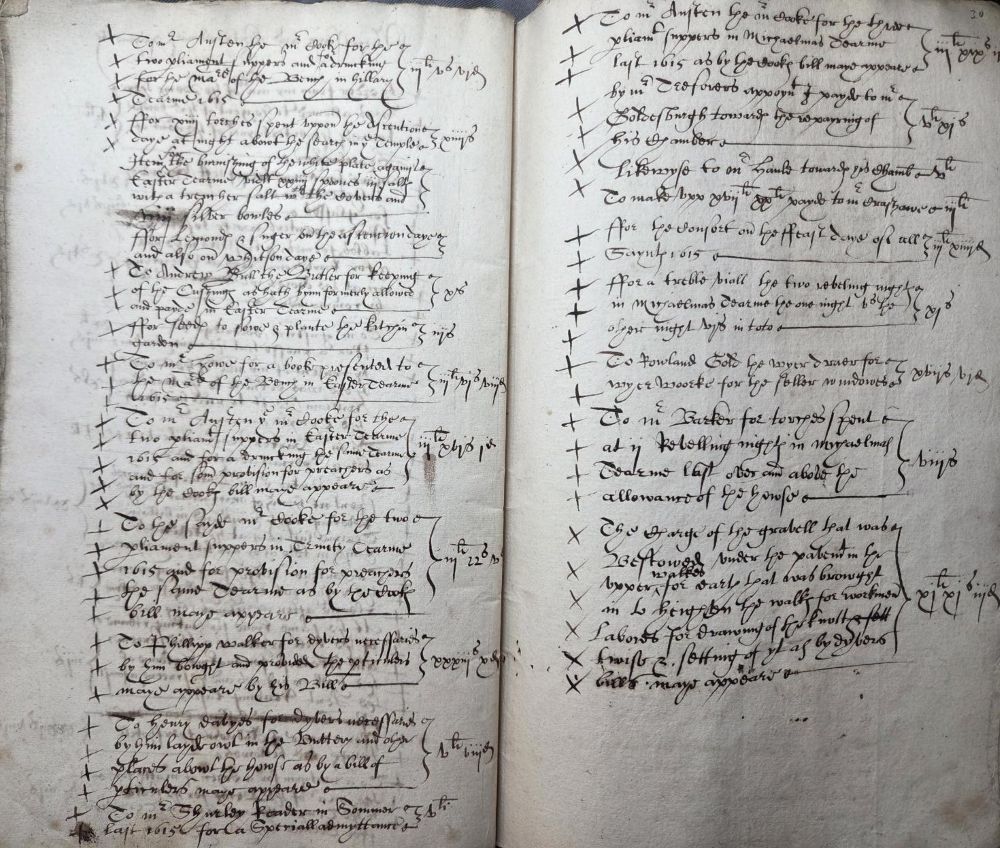 To mr Austen the mr Cook for the
two pliament suppers and for drincking
for the Mrs of the Bench in hillary
Tearme 1615 iij li vs vjd
ffor xiiij torches spent vppon the Ascention
daye at night about the search in ye Temple xiiijs
Item the burnishing of the white plate against
Easter Tearme vidzt xxiiij spones iij salts
with a trencher salt wth the Covers and
silver bowles
ffor Lemonds & singer on the ascention daye
and also on whitson daye
To Andrew Bull the Butler for keeping
of the Cusshings as hath bynn formerly allowed
and payde in Easter Tearme xs
ffor seeds to sowe & plante the kitchin
garden iijs
To mr howe for a book presented to
the Mrs of the Bench in Easter Tearme
1615 iij li vjs viijd
To mr Austen ye mr Cooke for the
two pliament suppers in Easter Tearme
1615 and for a drincking the same Tearme
and for som provision for preachers as
by the Cooks bill maye appeare iij li xvjs jd
To the sayde mr Cooke for the two
pliament suppers in Trinity Tearme
1615 and for provision for preachers
the same Tearme as by the Cooks
bill maye appeare
To Phillipp walker for dyvers necessaries
by him bowght and provided the pticulers
maye appeare by his Bill xxxijs
To henry davyes for dyvers necessaries
by him layde owt in the Buttery and other
places about the howse as by a bill of
pticulers maye appeare v li viijd
To mr Shurley Reader in Sommer
last 1615 for a Speciall admyttance v li
30
To mr Austen the mr Cooke for the three
pliamt suppers in Michaelmas Tearme
last 1615 as by the Cooks bill maye appeare iij li xixs
by mr Tresorers appoyntmt payde to mr
Goldesburgh towards the repayring of
his Chamber v li xjs
Likewyse to mr towards his Chamber v li
To make vpp xvij li xx li payde to mr Crashawe iij li
ffor the Consort on the ffeast daye of all
Saynts 1615 iij li xiiijd
ffor a treble viall the two reveling nights
in Michaelmas Tearme the one night vs the
other night vjs in toto xjs
To Rowland Gold the wyerdrawer for
wyerwoorke for the seller windowes xvijs vjd
To mr Barker for torches spent
at ij Revelling nights in Michaelmas
Tearme last over and above the
allowance of the howse viijs
The charge of the gravell that was
Bestowed vnder the pavemt in the
vpper walkes for earth that was browght
in to heighten the walks for workmen
Labores for drawing of the knotts & sett
twists & setting of yt as by dyvers
bills maye appeare xj li xjs iijd